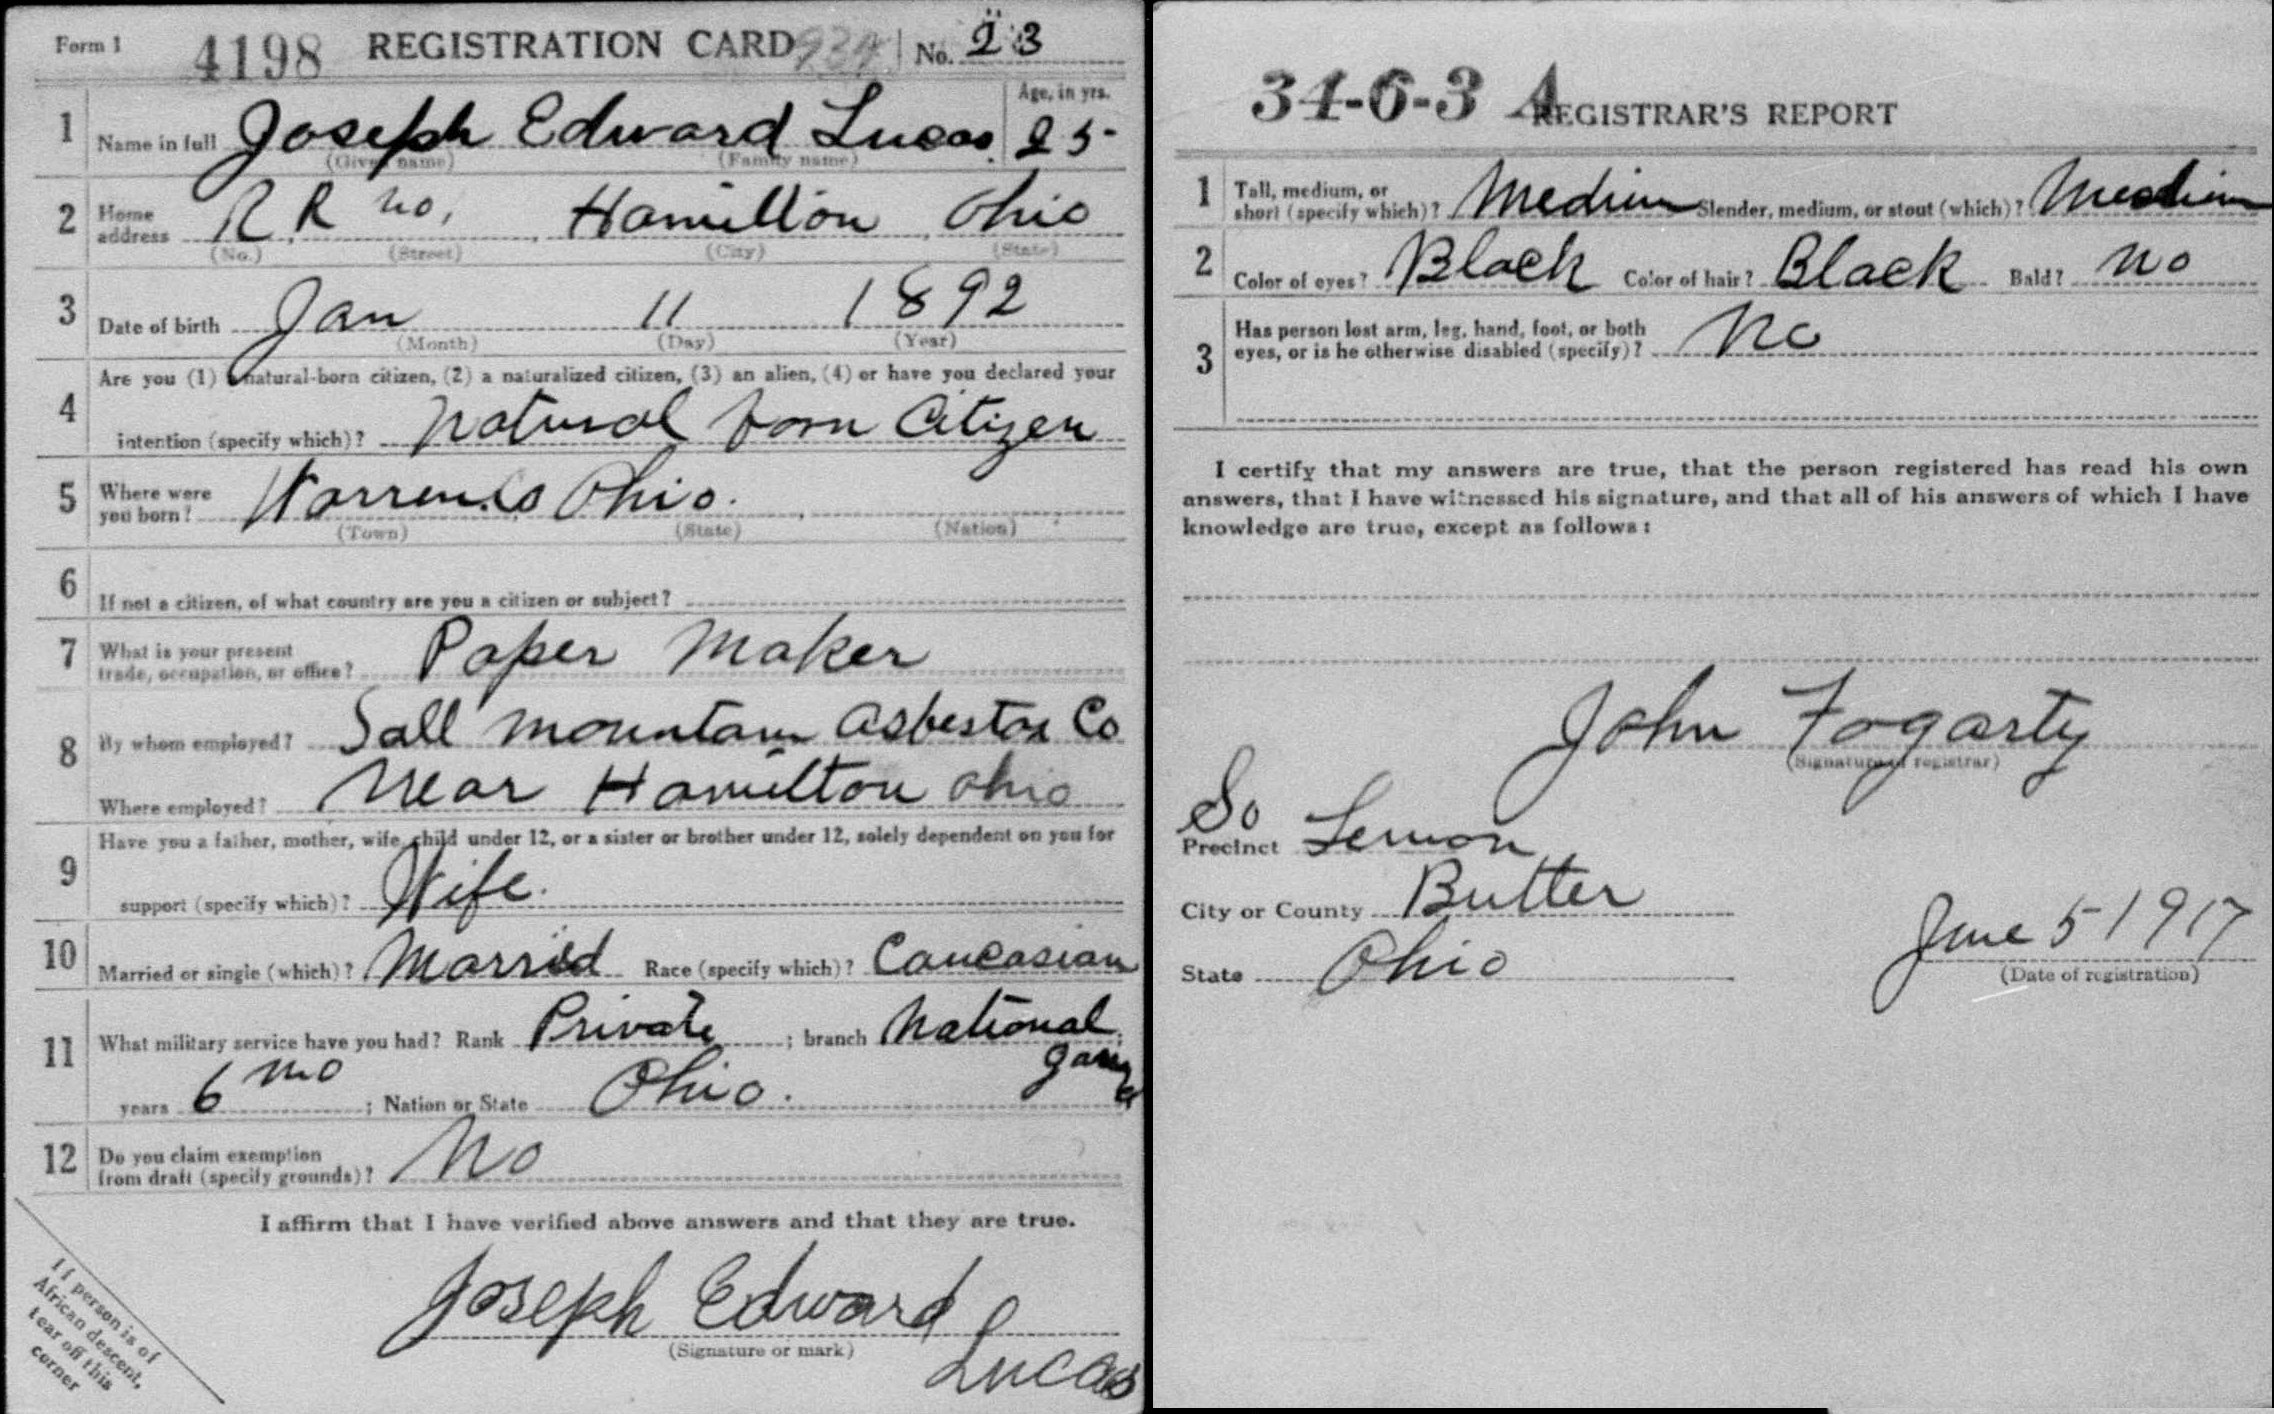 Form 1 4198 REGISTRATION CARD No. 23
1 Name in full Joseph Edward Lucas Age, in yrs. 25
(Given name) (Family name)
2 Home address R.R no, Hamilton, Ohio
(No.) (Street) (City) (State)
3 Date of birth Jan 11 1892
(Month) (Day) (Year)
4 Are you (1) a natural-born citizen, (2) a naturalized citizen, (3) an alien, (4) or have you declared your
intention (specify which)? Natural born Citizen
5 Where were you born? Warren Co Ohio.
(Town) (State) (Nation)
6 If not a citizen, of what country are you a citizen or subject?
7 What is your present trade, occupation, or office? Paper Maker
8 By whom employed? Sall Mountain Asbestos Co
Where employed? Near Hamilton Ohio
9 Have you a father, mother, wife, child under 12, or a sister or brother under 12, solely dependent on you for
support (specify which)? Wife.
10 Married or single (which)? Married Race (specify which)? Caucasian
11 What military service have you had? Rank Private ; branch National
years 6 mo ; Nation or State Ohio.
12 Do you claim exemption from draft (specify grounds)? No
I affirm that I have verified above answers and that they are true.
Joseph Edward
(Signature or mark)
Lucas
If person is of
African descent,
tear off this
corner
34-6-3 A REGISTRAR'S REPORT
1 Tall, medium, or short (specify which)? Medium Slender, medium, or stout (which)? Medium
2 Color of eyes? Black Color of hair? Black Bald? No
3 Has person lost arm, leg, hand, foot, or both
eyes, or is he otherwise disabled (specify)? No
I certify that my answers are true, that the person registered has read his own
answers, that I have witnessed his signature, and that all of his answers of which I have
knowledge are true, except as follows:
John Fogarty
(Signature of registrar)
So
Precinct Lemon
City or County Butler
State Ohio June 5 1917
(Date of registration)